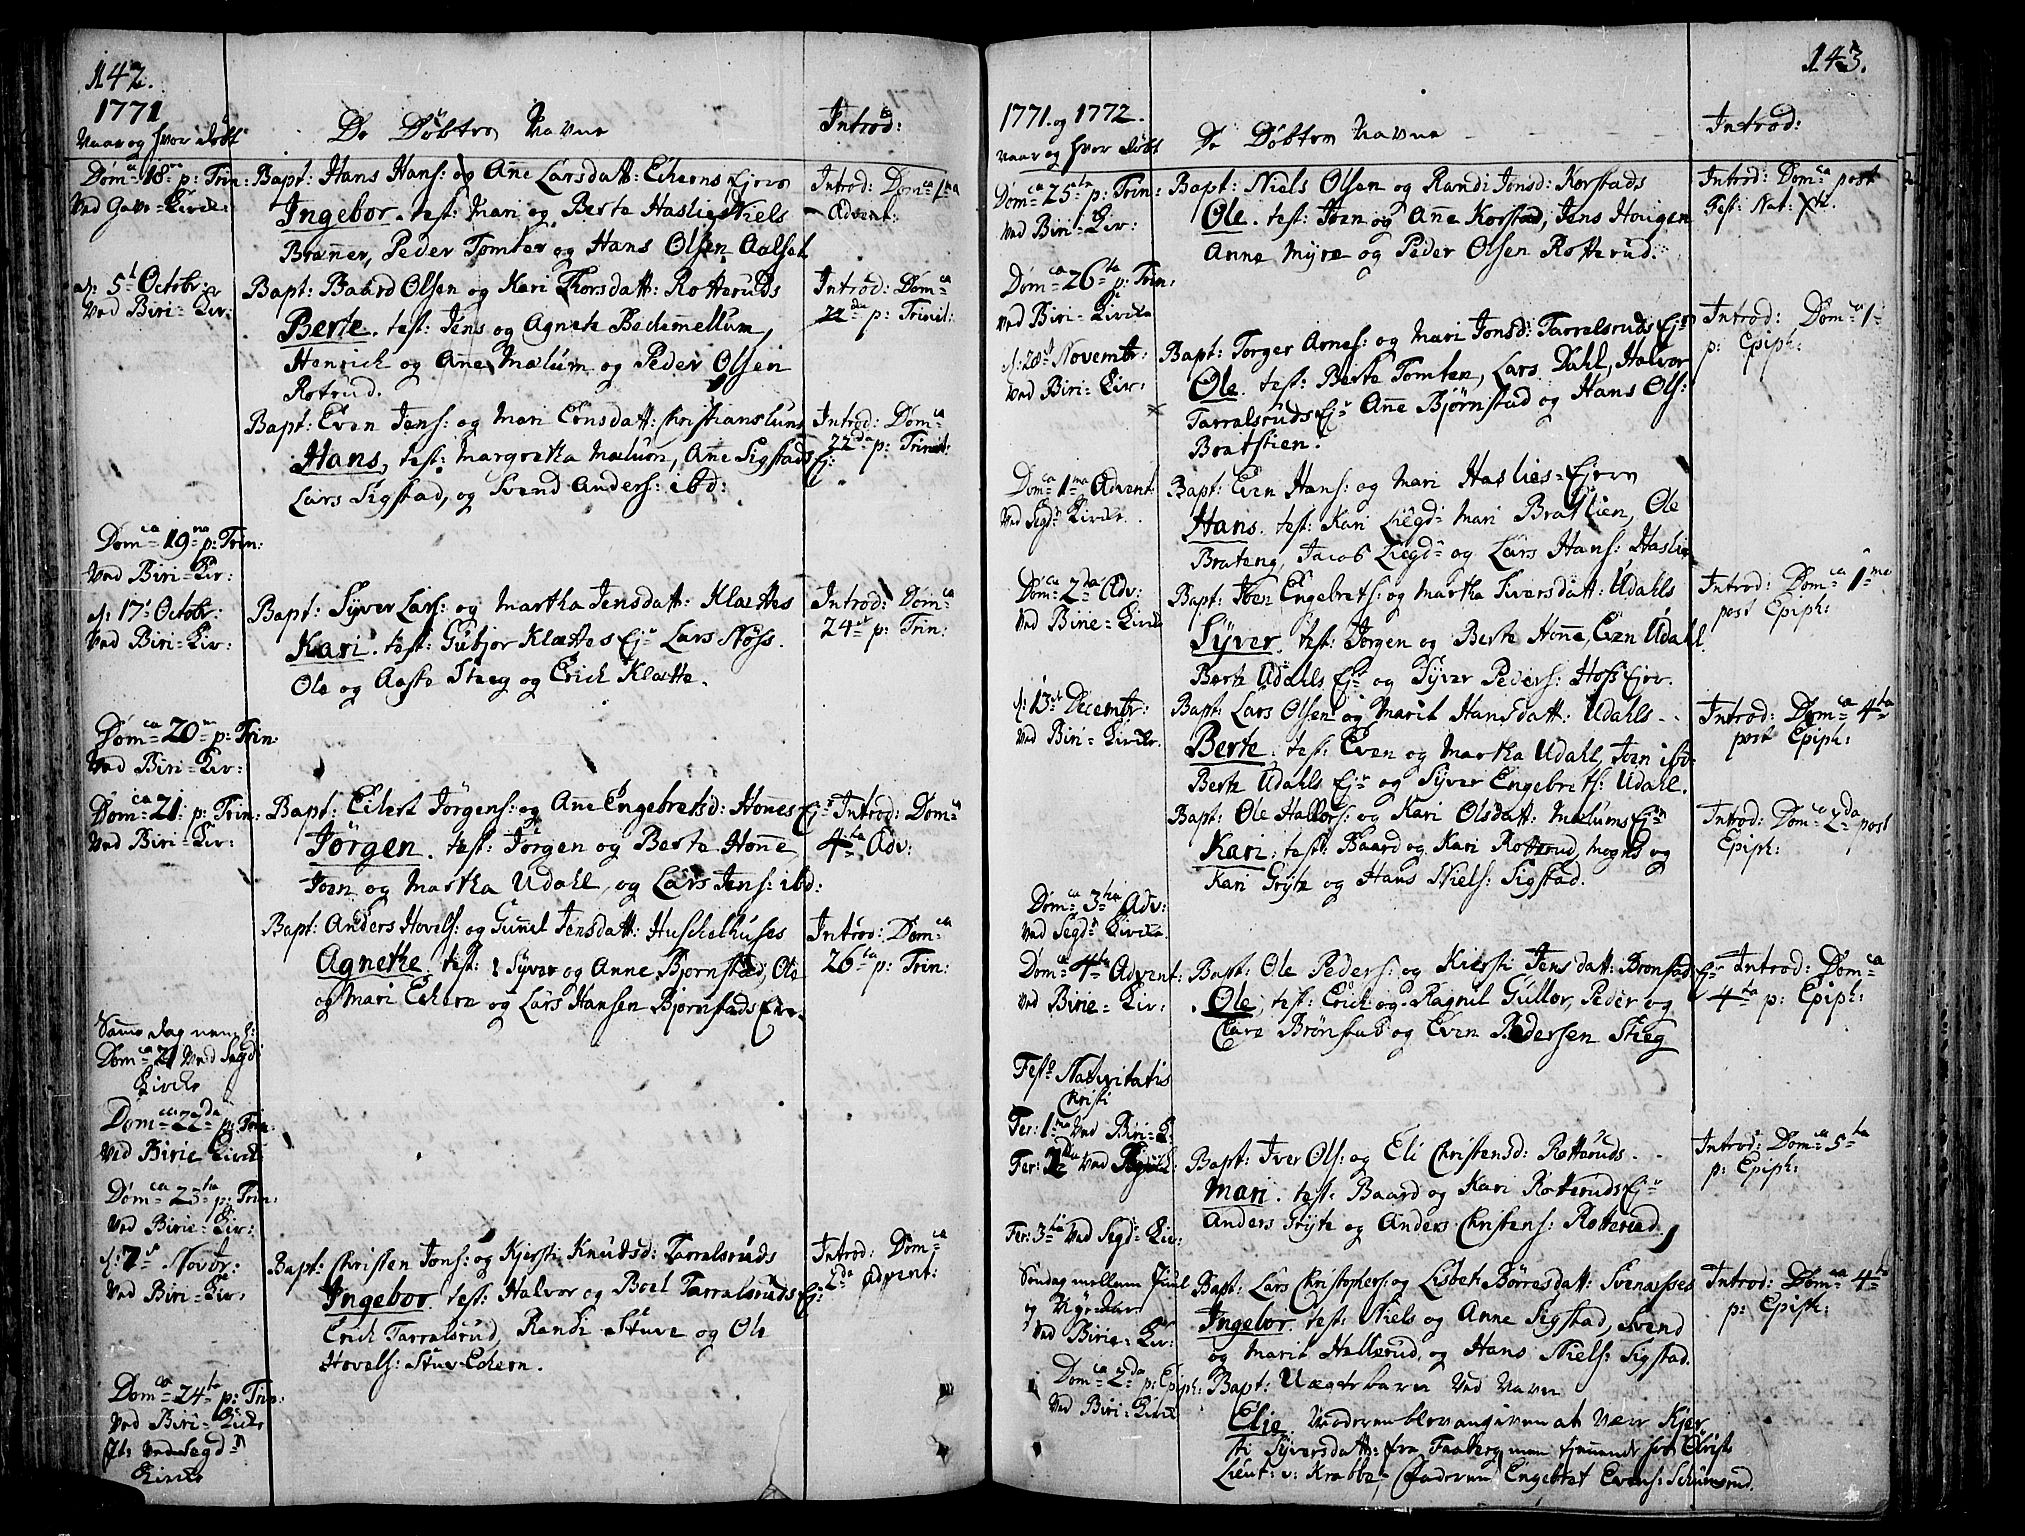 142.
1771
Naar og hvor døbt
De Døbtes Navne
Introd:
Dom: 18 p: Trin:
Bapt: Hans Hans: og Anne Larsdatt: Echerns Ejer
Introd: Dom 1ma
Ved Kirch:
Ingebor. test: Mari og Berte Haslies Niels
Advent:
Peder Tomter og Hans Olsen Aalset
d: 5t Octobr:
Bapt: Baard Olsen og Kari Thorsdatt: Rotteruds
Introd: Dom ca
Ved Biri-Kir:
Berte. test: Jens og Agnete
22da p: Trinit:
Henrich og Anne Mælum og Peder Olsen
Rotrud.
Bapt: Even Jens: og Mari Ernsdatt: Christianslund
Introd: Dom ca
Hans, test: Margretha Mælum, Anne Sigstads Ej:
22da p: Trinit:
Lars Sigstad, og Svend Anders: ibd:
Dom ca 19na p: Trin:
Ved Biri-Kir:
d: 17t Octobr:
Bapt: Syver Lars: og Martha Jensdatt: Klættes
Introd: Dom ca
Ved Biri-Kir:
Kari. test: Gubjor Klættes Ej: Lars Nøss.
24 p: Trin:
Ole og Aaste Steeg og Erich Klætte.
Dom ca 20 p: Trin:
Ved Biri-Kir:
Dom ca 21 p: Trin:
Bapt: Eilert Jörgens: og Anne Engebretsd: Honnes Ej:
Introd: Dom ca
Ved Biri-Kir:
Jörgen. test: Jörgen og Berte Honne
4ta Adv:
Joen og Martha Udahl, og Lars Jens: ibd:
Bapt: Anders Hovels: og Gunnel Jensdatt: Huschelhuses
Introd: Dom ca
Agnethe. test: Syver og Anne Bjørnstad, Ole
26ta p: Trin:
og Mari Echern og Lars Hansen Bjørnstads Eje.
Samme dag neml:
Dom ca 21 Ved Segd:
Kirche
Dom ca 22da p: Trin:
Ved Birie Kirch:
Dom ca 23tia p: Trin:
Ved Birie-Kir:
d: 7 Novbr:
Bapt: Christen Jons: og Kjersti Knudsd: Tarralsruds
Introd: Dom ca
Ved Biri-Kir:
Ingebor. test: Halvor og Boel Tarralsruds Ej:
2da Advent:
Erich Tarralsrud, Randi Stuve og Ole
Hovels: Stuv-Echern.
Dom ca 24ta p: Trin:
Ved Biri-Kirche
It: Ved Segd:
Kirche
143.
1771. og 1772.
Naar og hvor døbt
De Døbtes Navne
Introd:
Dom ca 25ta p: Trin:
Bapt: Niels Olsen og Randi Jonsd: Korstads
Introd: Dom ca post
Ved Biri-Kir:
Ole. test: Joen og Anne Korstad, Jens Hougen
Fest: Nat: Xti.
Anne Myre og Peder Olsen Rotterud.
Dom ca 26ta p: Trin:
Ved Biri-Kirche
d: 28t Novembr:
Bapt: Torger Arnes: og Mari Jonsd: Tarralsruds Ej:
Introd: Dom ca 1
Ved Biri-Kir:
Ole. test: Berte Tomten, Lars Dahl, Halvor
p: Epiph:
Tarralsruds Ej: Anne Bjørnstad og Hans Ols:
Bratstien.
Dom ca 1ma Advent:
Bapt: Even Hans: og Mari Haslies-Ejern
Ved Segd: Kirche.
Hans. test: Kari Liegd: Mari Bratlien, Ole
Brateng, Jacob Liegd: og Lars Hans: Haslie
Dom ca 2da Adv:
Bapt: Joen Engebrets: og Martha Siversdatt: Udahls
Introd: Dom ca 1ma
Ved Birie-Kirche
Syver. test: Jörgen og Berte Honne, Even Udahl
post Epiph:
Berte Udahls Ej: og Syver Peders: Hoss Ejer.
d: 13de Decembr:
Bapt: Lars Olsen og Marit Hansdatt: Udahls
Introd: Dom ca 4ta
Ved Biri-Kirche.
Berte. test: Even og Martha Udahl, Joen ibd.
post Epiph:
Berte Udahls Ej: og Syver Engebreths: Udahl.
Bapt: Ole Halvors: og Kari Olsdatt: Mælums Ej:
Introd: Dom ca 2da post
Kari: test: Baard og Kari Rotterud, Mogns og
Epiph:
Kari Gryte og Hans Niels: Sigstad.
Dom ca 3tia Adv:
Ved Segd: Kirche.
Dom ca 4ta Advent:
Bapt: Ole Peders: og Kiersti Jensdatt: Bronstads Ej:
Introd: Dom ca
Ved Birie-Kir:
Ole, test: Erich og Ragnil Gullor, Peder og
4ta p: Epiph:
Clara Brönstad og Even Pedersen Steeg
Fest: Nativitatis
Christi
Fer: 1ma Ved Biri-K:
Fer: 2da Ved
Bapt: Iver Ols: og Eli Christensd: Rotteruds
Introd: Dom ca 5ta
Mari. test: Baard og Kari Rotteruds Ej:
p: Epiph:
Anders Gryte og Anders Christens: Rotterud.
Fer: 3tia Ved Segd: Kir:
Søndag mellem Juul
Bapt: Lars Christophers: og Lisbet Börresdatt: Svenesses
Introd: Dom ca 4ta
og Nyeaar
Ingebor. test: Niels og Anne Sigstad, Svend
p: Epiph:
Ved Birie-Kir:
og Marit Hallerud, og Hans Niels: Sigstad.
Dom ca 2da p: Epiph:
Bapt: Uægtebarn Ved Navn
Ved Biri-Kirche
Elie. Moderen blev angiven at være Kjer
sti Syversdatt: fra Faaberg men tjennende hos
Lieut: v: Krabbe, Faderen Engebret Evens: Schumsrud.